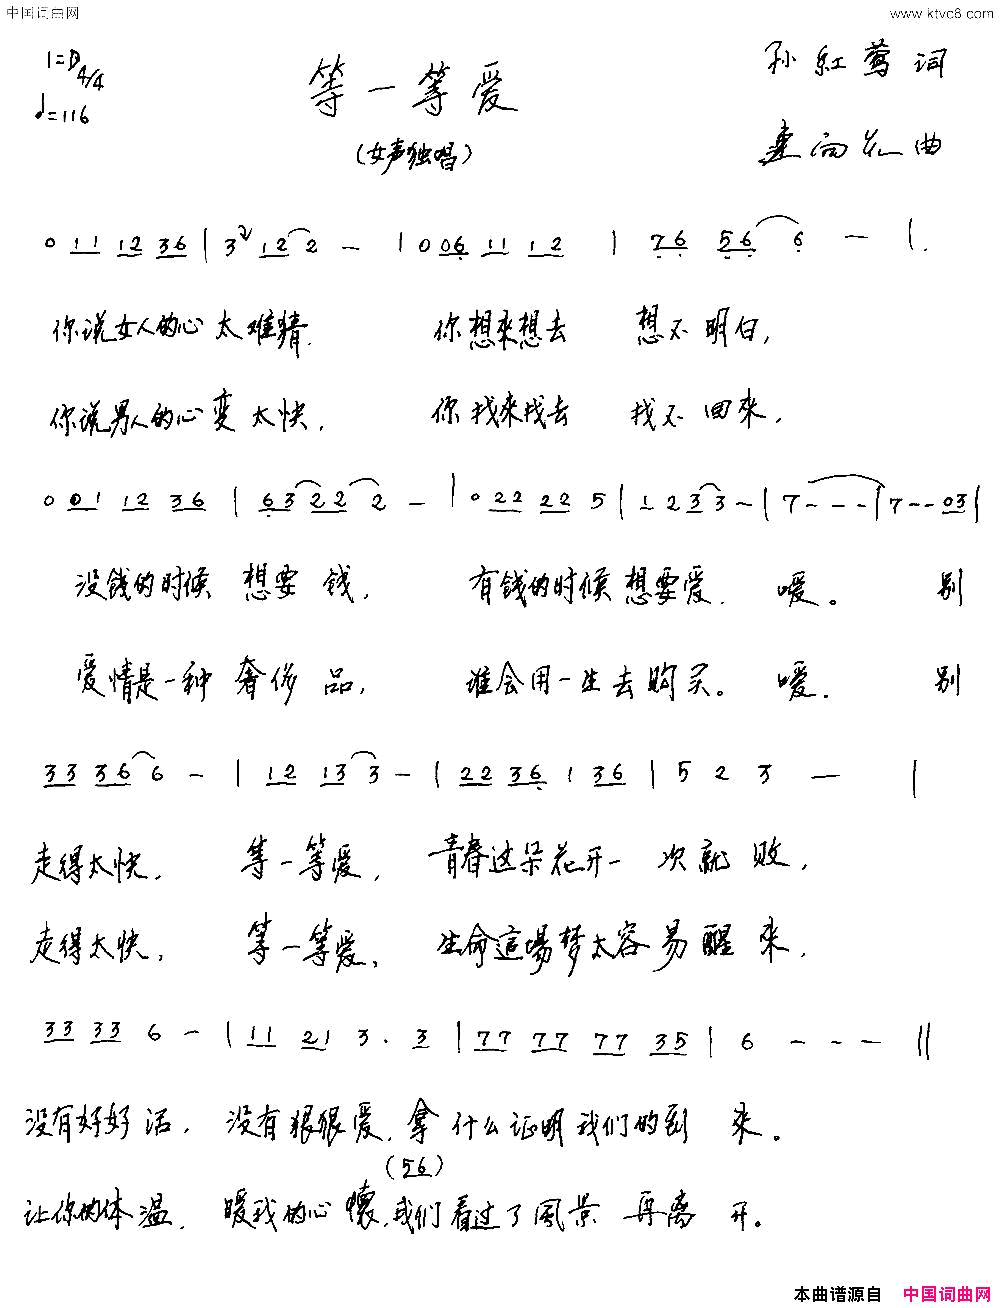 中国词曲网 www.ktvc8.com
1=D 4/4
♩=116
等一等爱
孙红莺词
(女声独唱)
曲
0 11 12 36 | 3 2 12 2 — | 0 06 11 12 | 76 56 6 — |
你说女人的心太难猜. 你想来想去 想不明白,
你说男人的心变太快. 你找来找去 找不回来.
0 01 12 36 | 63 22 2 — | 0 22 22 5 | 1 2 3 3 — | 7 - - - | 7 - - 03 |
没钱的时候 想要钱, 有钱的时候想要爱. 嗳。 别
爱情是一种奢侈品, 谁会用一生去购买。嗳. 别
33 36 6 — | 12 13 3 — | 22 36 1 36 | 5 2 3 — |
走得太快. 等一等爱, 青春这朵花开一次就败,
走得太快, 等一等爱, 生命這場梦太容易醒来,
33 33 6 — | 11 21 3 . 3 | 77 77 77 35 | 6 — — — ||
没有好好活, 没有狠狠爱, 拿什么证明我们的到来。
(56)
让你的体温, 暖我的心懷, 我们看过了風景再离开。
本曲谱源自 中国词曲网